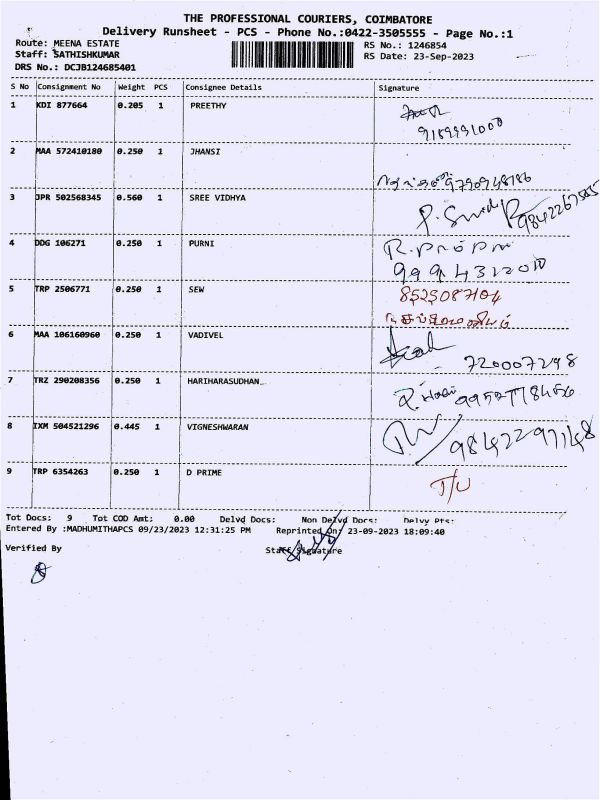 THE PROFESSIONAL COURIERS, COIMBATORE
Delivery Runsheet - PCS - Phone No.:0422-3505555 - Page No.:1
Route: MEENA ESTATE RS No.: 1246854
Staff: SATHISHKUMAR RS Date: 23-Sep-2023
DRS No.: DCJB124685401
S No Consignment No Weight PCS Consignee Details Signature
1 KDI 877664 0.205 1 PREETHY
9189991000
2 MAA 572410180 0.250 1 JHANSI
9790948186
3 JPR 502568345 0.560 1 SREE VIDHYA
4 DDG 106271 0.250 1 PURNI
5 TRP 2506771 0.250 1 SEW 8523087104
6 MAA 106160960 0.250 1 VADIVEL
720007298
7 TRZ 290208356 0.250 1 HARIHARASUDHAN
8 IXM 504521296 0.445 1 VIGNESHWARAN
9842297148
9 TRP 6354263 0.250 1 D PRIME
T/U
Tot Docs: 9 Tot COD Amt: 0.00 Delvd Docs: Non Delvd Docs: Delvy Pts:
Entered By :MADHUMITHAPCS 09/23/2023 12:31:25 PM Reprinted On: 23-09-2023 18:09:40
Verified By Staff Signature